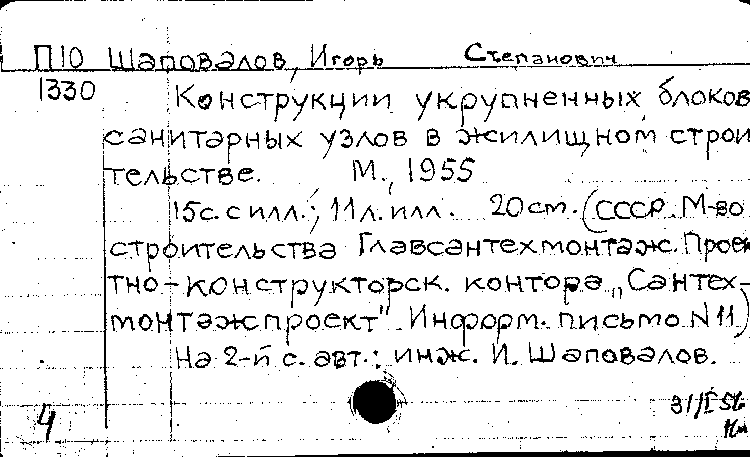 П10 Шаповалов, Игорь Степанович
1330 Конструкции укрупненных блоков
санитарных узлов в жилищном строи
тельстве. М., 1955
15с. с илл.; 11л. илл. 20 см. (СССР. М-во
строительства Главсантехмонтаж. Проек
тно-конструкторск. контора „Сантех-
монтажпроект" Информ. письмо N11)
На 2-й с. авт.: инж. И. Шаповалов.
31/I 56
4